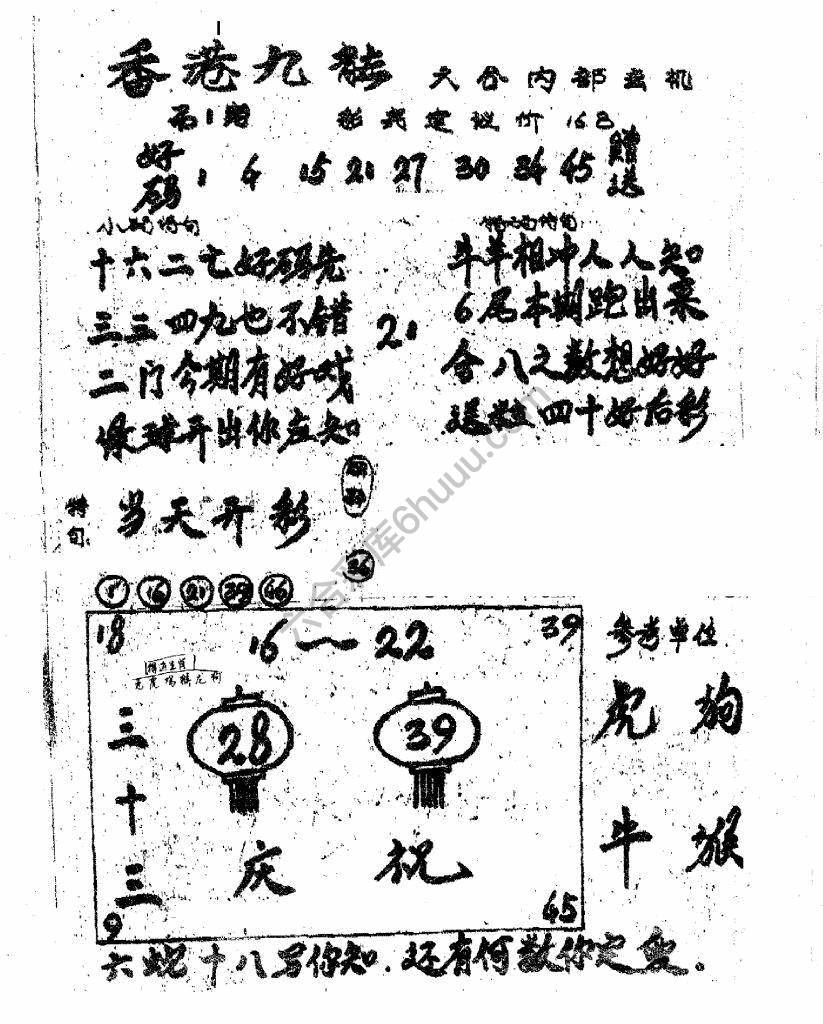 香港九龍 六合内部玄机
第1期 彩民建议价 16B
好码 1 4 15 21 27 30 34 45 赠送
特句
十六二七好码先
三三四九也不错
二门今期有好戏
绿球开出你应知
21
牛羊相冲人人知
6尾本期跑出来
合八之数想好好
送 四十好后彩
特句: 当天开彩
36
1 16 21 39 46
18 16～22 39
28 39
三十三
庆祝
9 45
参考单位
虎 狗
牛 猴
六蛇十八写你知.还有何数你定夺.
六合彩库6huuu.com